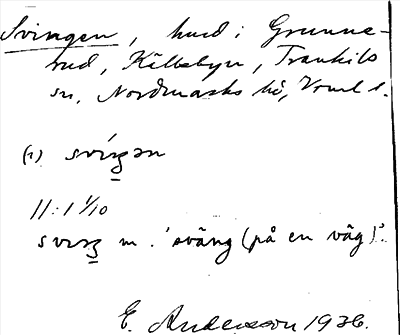 Svingen, hmd i Grunne-
rud, Källebyn, Trankils
sn, Nordmarks hd, Vrml l.
(1) svíŋən
11:1 1/10
sviŋ m. 'sväng (på en väg)'.
E. Andersson 1936.